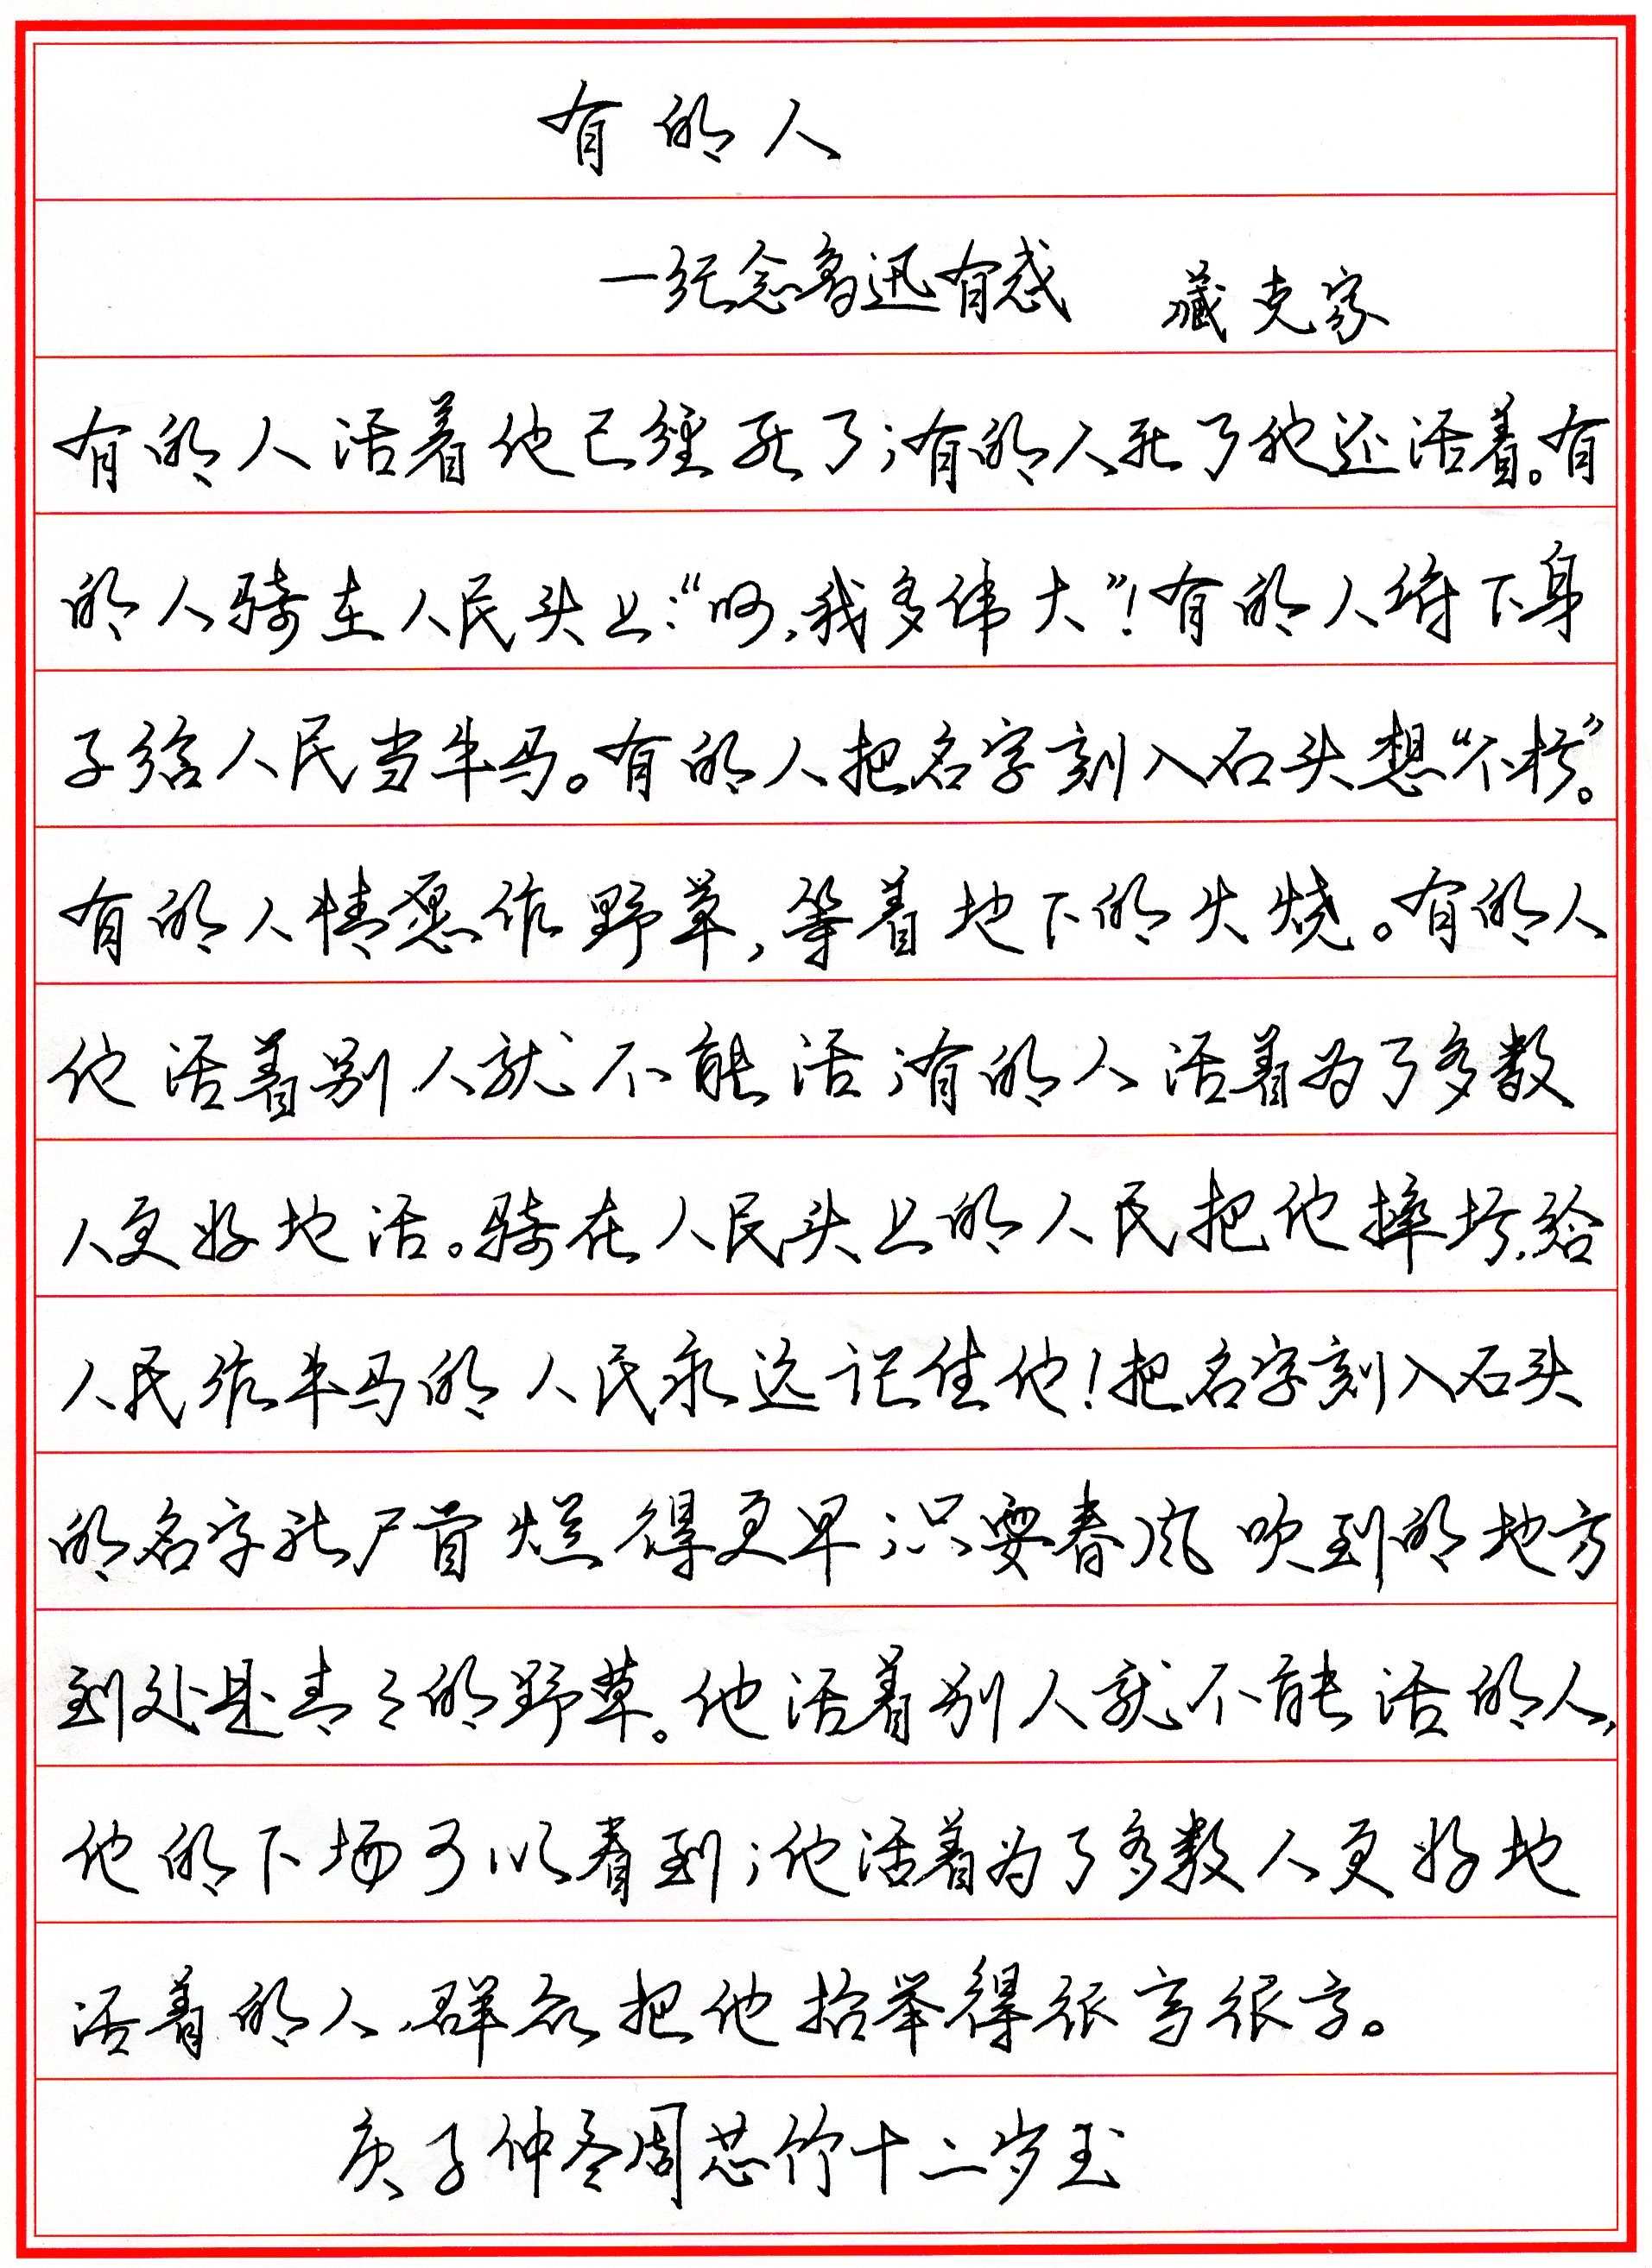 有的人
一纪念鲁迅有感 臧克家
有的人活着他已经死了；有的人死了他还活着。有
的人骑在人民头上：“呵，我多伟大”！有的人俯下身
子给人民当牛马。有的人把名字刻入石头想“不朽”。
有的人情愿作野草，等着地下的火烧。有的人
他活着别人就不能活；有的人活着为了多数
人更好地活。骑在人民头上的人民把他摔垮，给
人民作牛马的人民永远记住他！把名字刻入石头
的名字比尸首烂得更早；只要春风吹到的地方
到处是青々的野草。他活着别人就不能活的人，
他的下场可以看到；他活着为了多数人更好地
活着的人，群众把他抬举得很高很高。
庚子仲冬周芯竹十二岁玉